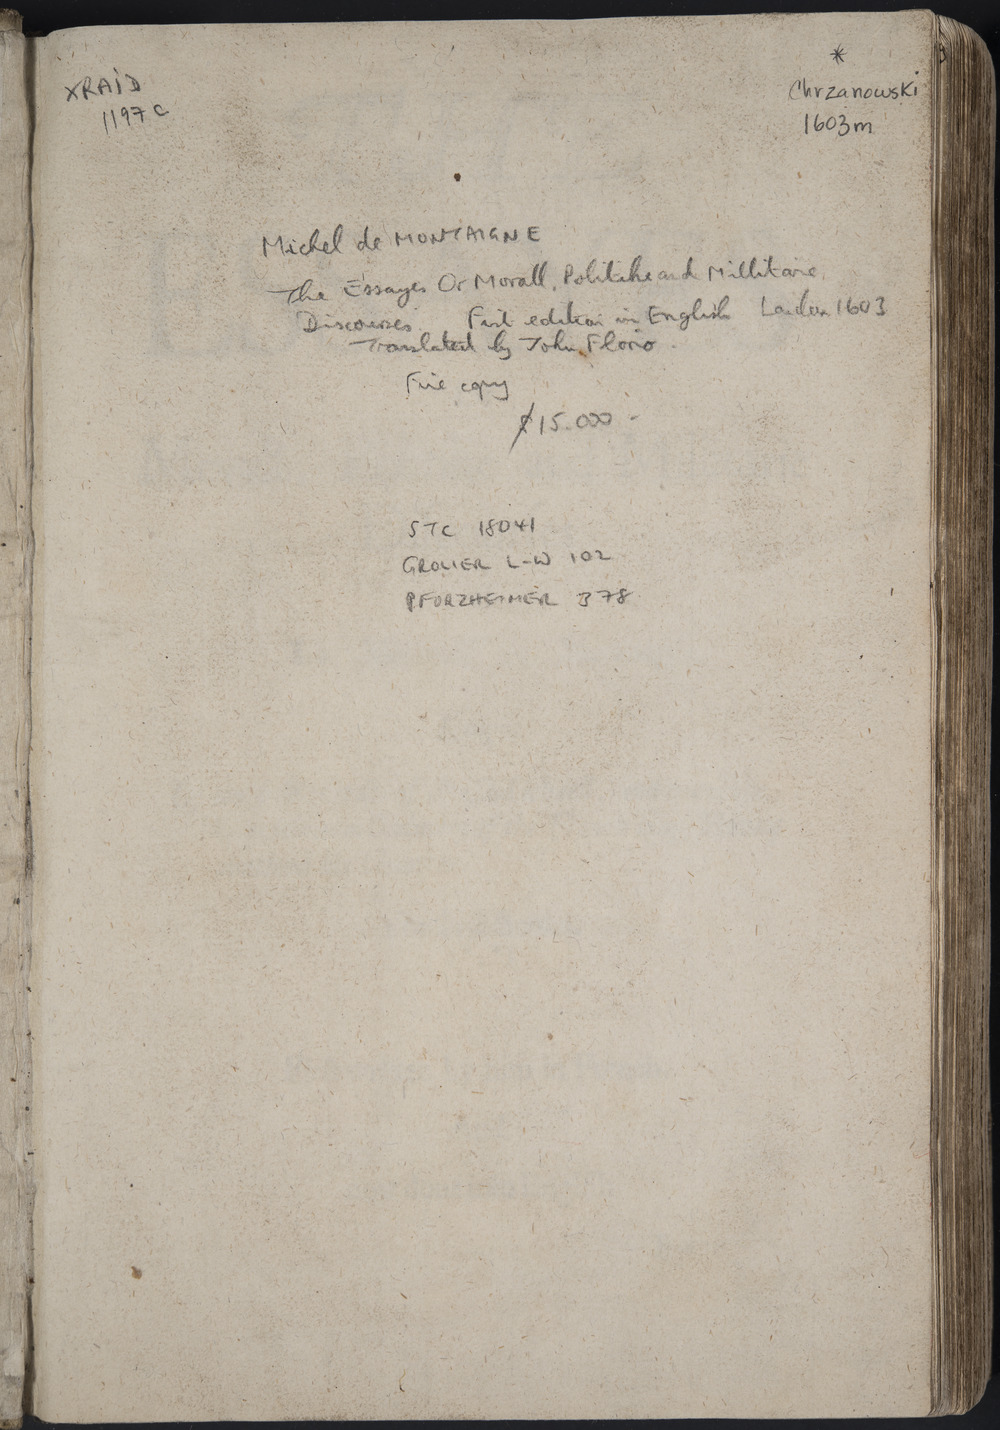 XRAID
1197 c
*
Chrzanowski
1603m
Michel de MONTAIGNE
The Essayes Or Morall, Politike and Millitarie
Discourses. First edition in English London 1603
Translated by John Florio.
Fine copy
$15.000 -
STC 18041
GROLIER L-W 102
PFORZHEIMER 378